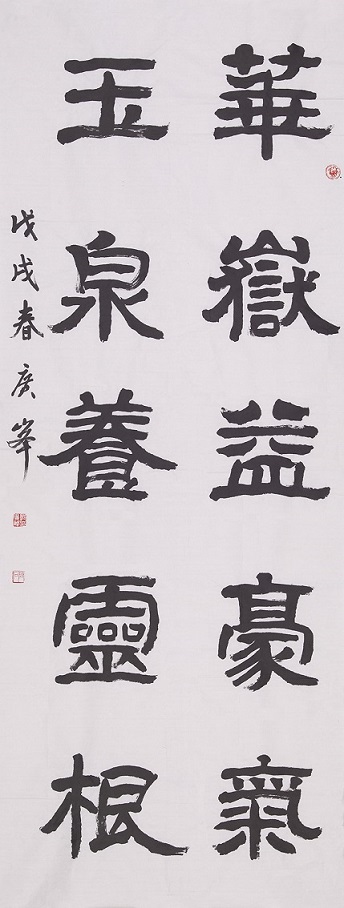 華嶽益豪氣
玉泉養靈根
戊戌春廣峯